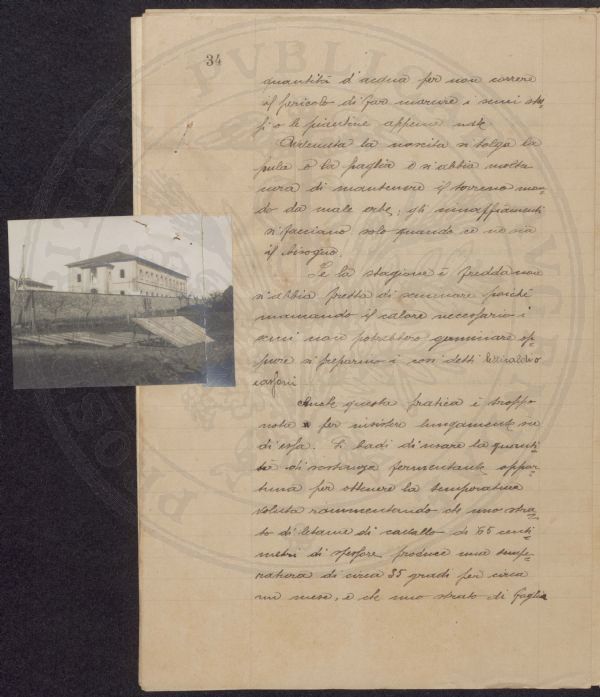 34
quantità d'acqua per non correre
il pericolo di far marcire i semi stes-
si o le piantine appena nate
Avvenuta la nascita si tolga la
pula o la paglia e si abbia molta
cura di mantenere il terreno mon-
do da male erbe; gli innaffiamenti
si facciano solo quando ce ne sia
il bisogno.
Se la stagione è fredda non
si abbia fretta di seminare poiché
mancando il calore necessario i
semi non potrebbero germinare op-
pure si preparino i così detti letti caldi o
cassoni
Anche questa pratica è troppo
nota per insistere lungamente su
di essa. Si badi di usare la quanti-
tà di sostanza fermentante oppor-
tuna per ottenere la temperatura
voluta rammentando che uno stra-
to di letame di cavallo di 65 centi-
metri di spessore produce una tempe-
ratura di circa 35 gradi per circa
un mese, e che uno strato di foglie
PVBLICO